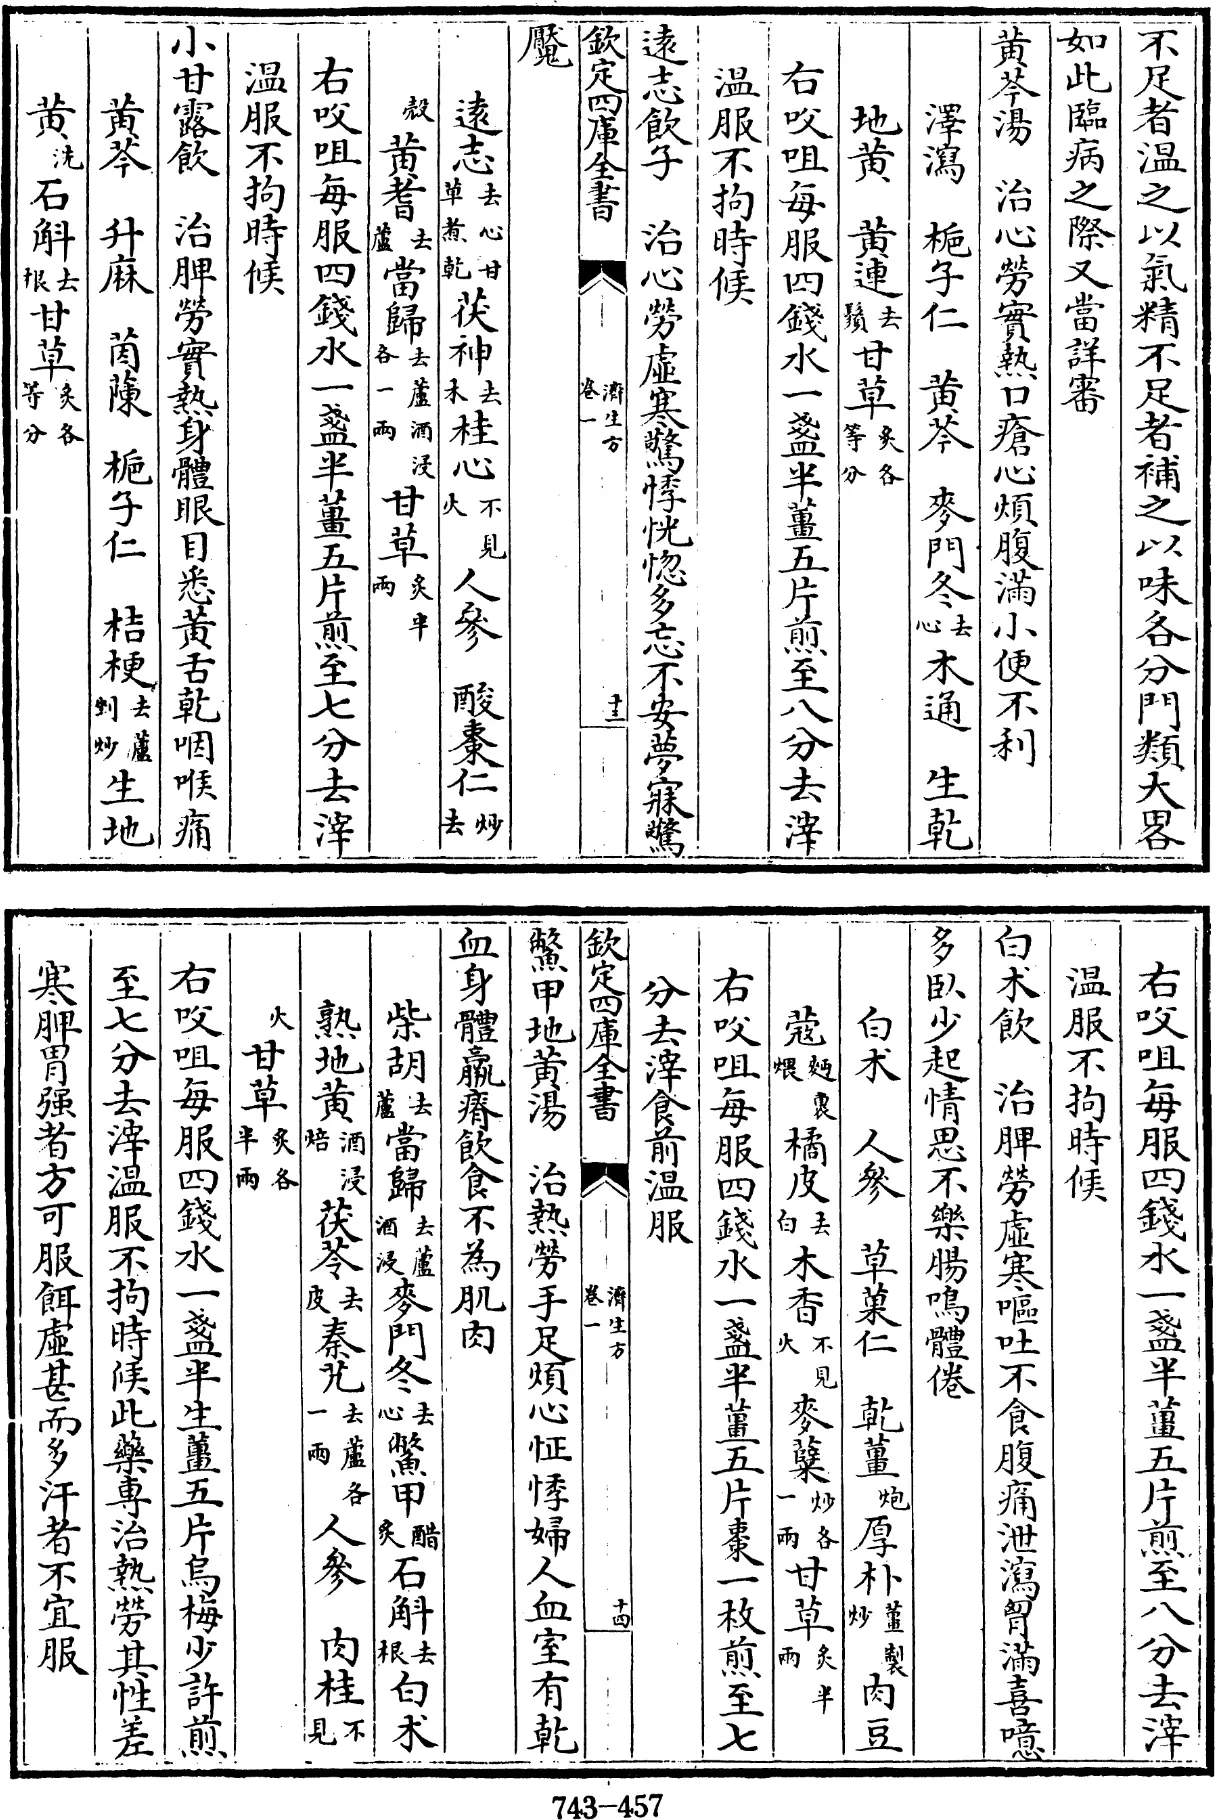 不足者温之以氣精不足者補之以味各分門類大畧
如此臨病之際又當詳審
黄芩湯　治心勞實熱口瘡心煩腹滿小便不利
澤瀉　梔子仁　黄芩　麥門冬去心木通　生乾
地黄　黄連去鬚甘草炙各等分
右㕮咀每服四錢水一盞半薑五片煎至八分去滓
温服不拘時候
遠志飲子　治心勞虛寒驚悸恍惚多忘不安夢寐驚
欽定四庫全書　濟生方卷一　十三
魘
遠志去心甘草煮乾茯神去木桂心不見火人參　酸棗仁炒去
殼黄耆去蘆當歸去蘆酒浸各一兩甘草炙半兩
右㕮咀每服四錢水一盞半薑五片煎至七分去滓
温服不拘時候
小甘露飲　治脾勞實熱身體眼目悉黄舌乾咽喉痛
黄芩　升麻　茵蔯　梔子仁　桔梗去蘆剉炒生地
黄洗石斛去根甘草炙各等分
右㕮咀每服四錢水一盞半薑五片煎至八分去滓
温服不拘時候
白朮飲　治脾勞虛寒嘔吐不食腹痛泄瀉胷滿喜噫
多臥少起情思不樂腸鳴體倦
白朮　人參　草菓仁　乾薑炮厚朴薑製炒肉豆
蔻麪裏煨橘皮去白木香不見火麥糵炒各一兩甘草炙半兩
右㕮咀每服四錢水一盞半薑五片棗一枚煎至七
分去滓食前温服
欽定四庫全書　濟生方卷一　十四
鱉甲地黄湯　治熱勞手足煩心怔悸婦人血室有乾
血身體羸瘠飲食不為肌肉
柴胡去蘆當歸去蘆酒浸麥門冬去心鱉甲醋炙石斛去根白朮
熟地黄酒浸焙茯苓去皮秦艽去蘆各一兩人參　肉桂不見
火甘草炙各半兩
右㕮咀每服四錢水一盞半生薑五片烏梅少許煎
至七分去滓温服不拘時候此藥專治熱勞其性差
寒脾胃强者方可服餌虛甚而多汗者不宜服
743-457